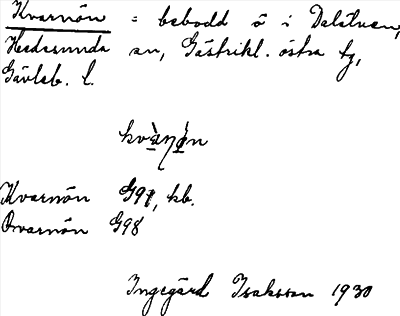 Kvarnön = bebodd ö i Dalälven,
Hedesunda sn, Gästrikl. östra tg,
Gävleb. l.
Kvarnön G91, kb.
Qvarnön G98
Ingegärd Isaksson 1930